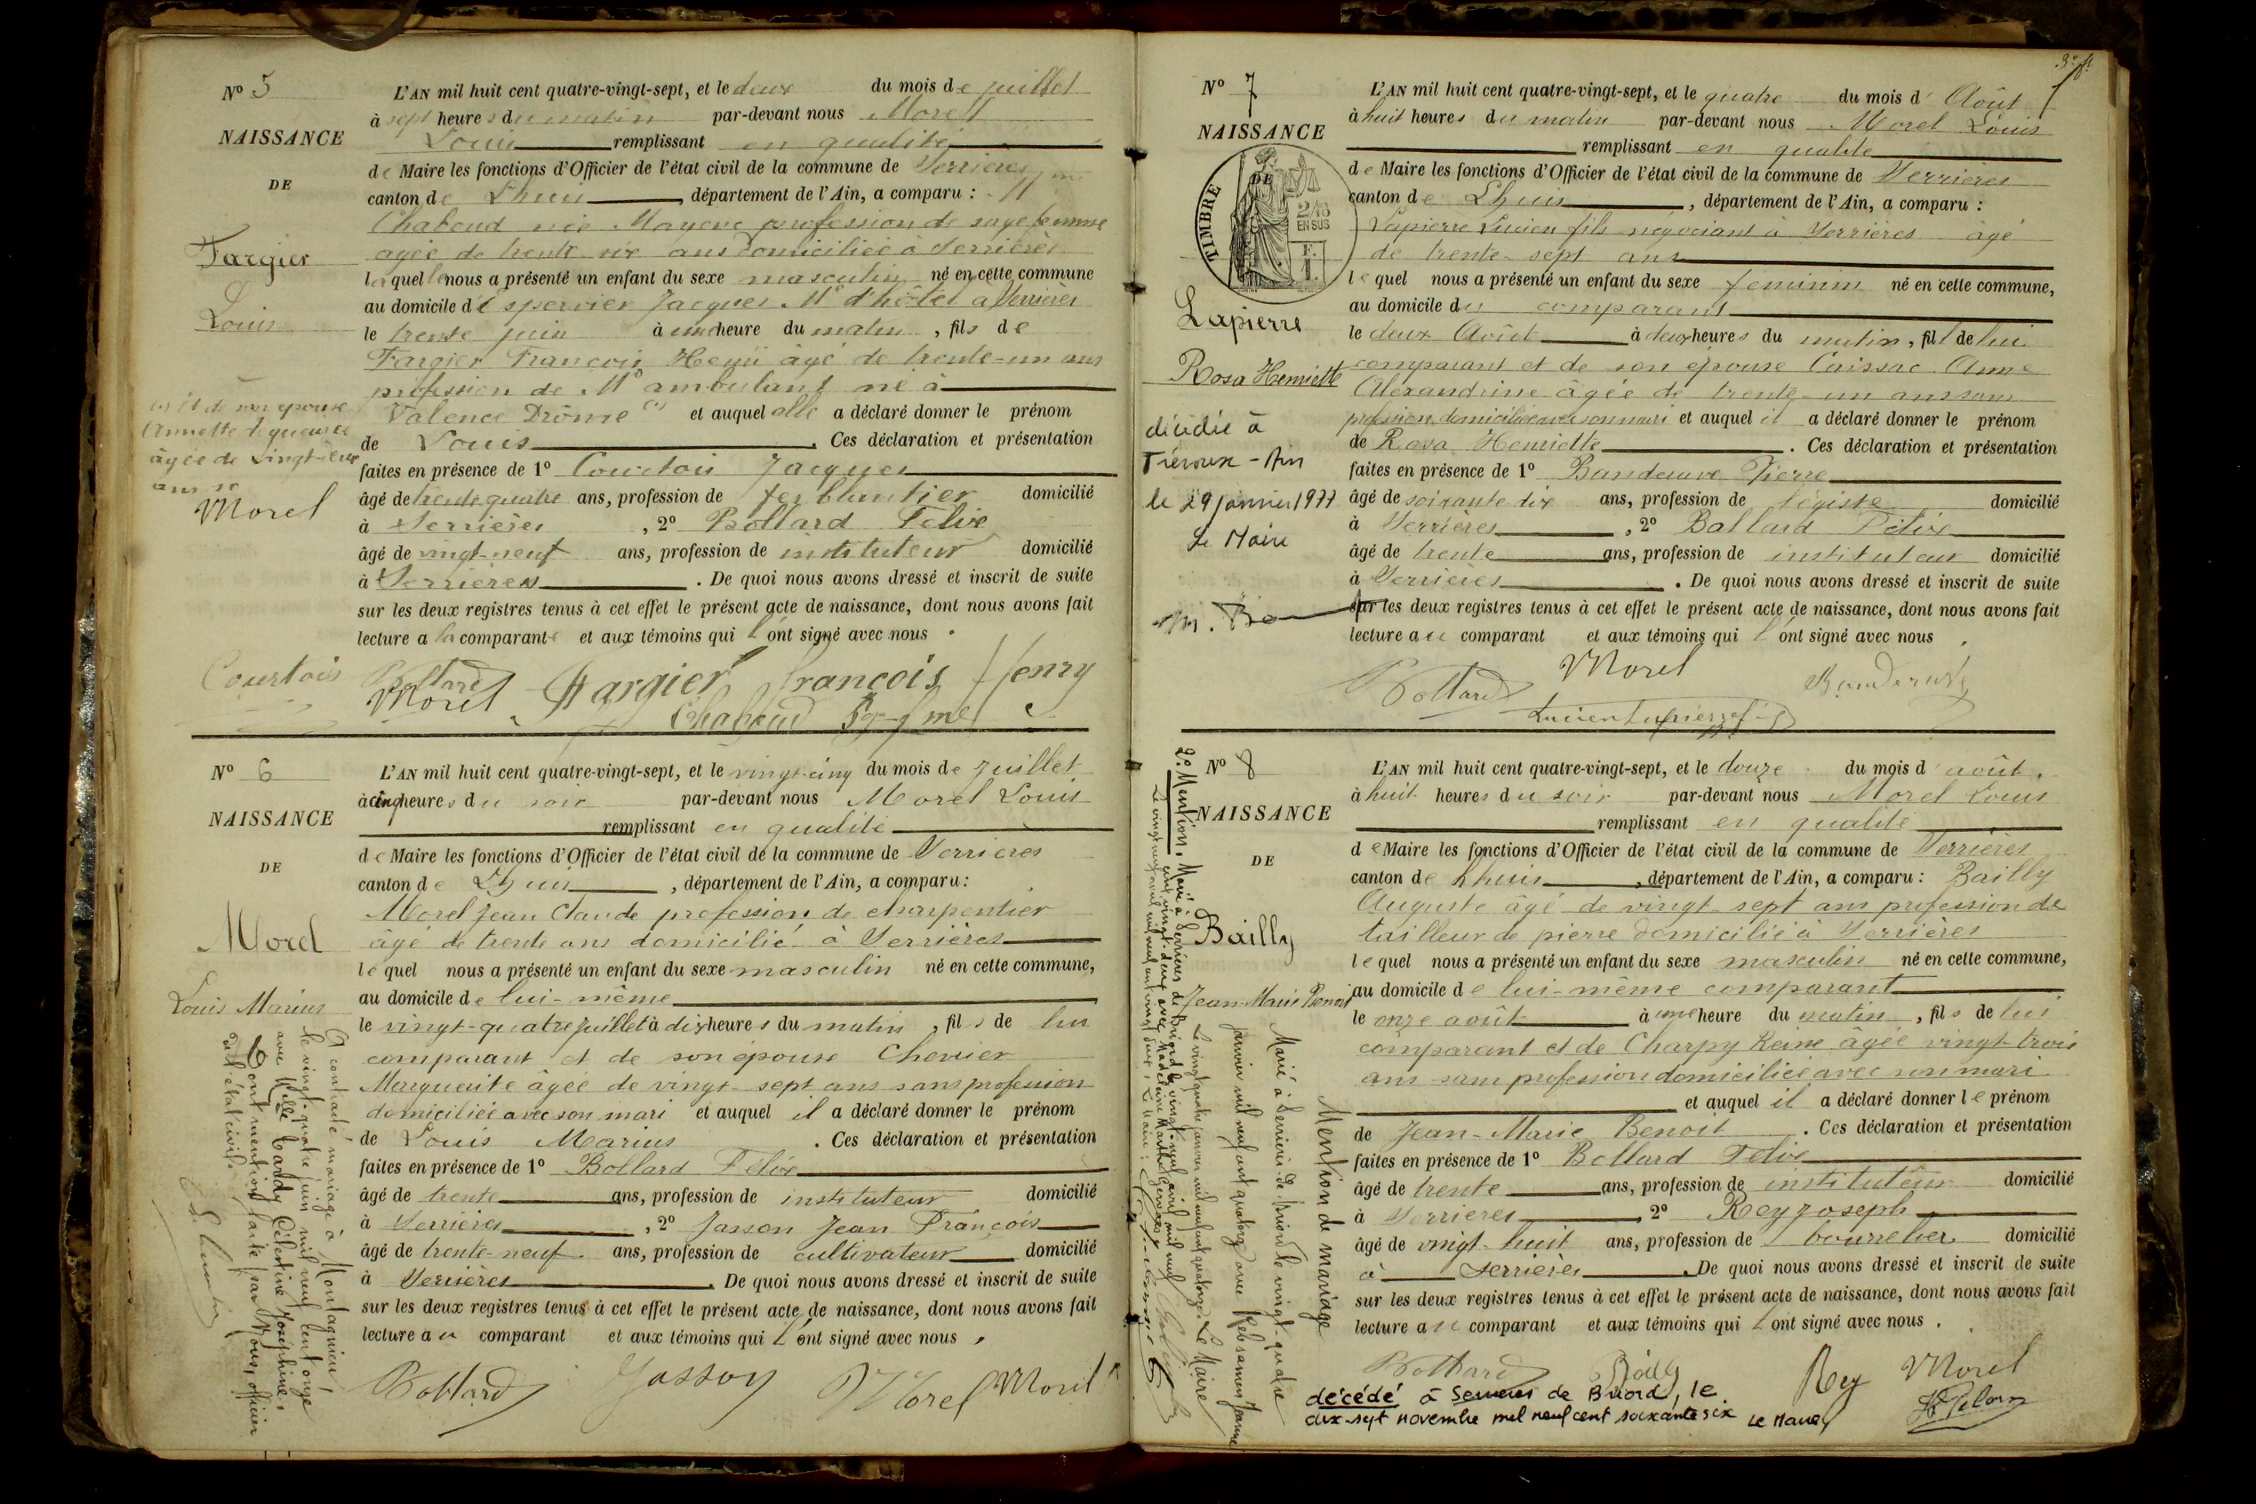 Nº 5
NAISSANCE
DE
Fargier
Louis
L'AN mil huit cent quatre-vingt-sept, et le deux du mois de juillet
à sept heures du matin par-devant nous Morel
Louis remplissant en qualité
de Maire les fonctions d'Officier de l'état civil de la commune de Serrières
canton de Lhuis, département de l'Ain, a comparu : Mme
Chaboud née Mayene profession de sage femme
agée de trente six ans domiciliée à Serrières
laquelle nous a présenté un enfant du sexe masculin né en cette commune
au domicile d'Espervier Jacques Md d'hôtel à Serrières
le trente juin à une heure du matin, fils de
Fargier François Henri âgé de trente-un ans
profession de Md ambulant né à
Valence Drôme et auquel elle a déclaré donner le prénom
de Louis. Ces déclaration et présentation
faites en présence de 1º Courtois Jacques
âgé de trente quatre ans, profession de ferblantier domicilié
à Serrières, 2º Bollard Felix
âgé de vingt-neuf ans, profession de instituteur domicilié
à Serrières. De quoi nous avons dressé et inscrit de suite
sur les deux registres tenus à cet effet le présent acte de naissance, dont nous avons fait
lecture a la comparante et aux témoins qui l'ont signé avec nous.
et de son épouse
Annette
âgée de vingt-
ans
Morel
Courtois Bollard Fargier françois Henry
Morel Chaboud
Nº 6
NAISSANCE
DE
Morel
Louis Marius
L'AN mil huit cent quatre-vingt-sept, et le vingt-cinq du mois de juillet
à cinq heures du soir par-devant nous Morel Louis
remplissant en qualité
de Maire les fonctions d'Officier de l'état civil de la commune de Serrières
canton de Lhuis, département de l'Ain, a comparu :
Morel Jean Claude profession de charpentier
âgé de trente ans domicilié à Serrières
lequel nous a présenté un enfant du sexe masculin né en cette commune,
au domicile de lui-même
le vingt-quatre juillet à dix heures du matin, fils de lui
comparant et de son épouse Chevier
Marguerite âgée de vingt-sept ans sans profession
domiciliée avec son mari et auquel il a déclaré donner le prénom
de Louis Marius. Ces déclaration et présentation
faites en présence de 1º Bollard Félix
âgé de trente ans, profession de instituteur domicilié
à Serrières, 2º Jasson Jean François
âgé de trente-neuf ans, profession de cultivateur domicilié
à Serrières. De quoi nous avons dressé et inscrit de suite
sur les deux registres tenus à cet effet le présent acte de naissance, dont nous avons fait
lecture au comparant et aux témoins qui l'ont signé avec nous.
A contracté mariage à Montagnieu
le vingt-quatre juin mil neuf cent onze
avec Melle Célestine Joséphine
Dont mention faite par Nous, officier
de l'état civil.
Bollard Jasson Morel Morel
3e f.
Nº 7
NAISSANCE
DE
TIMBRE
2/10
EN SUS
Lapierre
Rosa Henriette
L'AN mil huit cent quatre-vingt-sept, et le quatre du mois d'Août
à huit heures du matin par-devant nous Morel Louis
remplissant en qualité
de Maire les fonctions d'Officier de l'état civil de la commune de Serrières
canton de Lhuis, département de l'Ain, a comparu :
Lapierre Lucien fils négociant à Serrières âgé
de trente-sept ans
lequel nous a présenté un enfant du sexe feminin né en cette commune,
au domicile du comparant
le deux Août à deux heures du matin, fille de lui
comparant et de son épouse Caissac Anne
Alexandrine âgée de trente-un ans sans
profession, domiciliée avec son mari et auquel il a déclaré donner le prénom
de Rosa Henriette. Ces déclaration et présentation
faites en présence de 1º Pierre
âgé de soixante dix ans, profession de légiste domicilié
à Serrières, 2º Bollard Félix
âgé de trente ans, profession de instituteur domicilié
à Serrières. De quoi nous avons dressé et inscrit de suite
sur les deux registres tenus à cet effet le présent acte de naissance, dont nous avons fait
lecture au comparant et aux témoins qui l'ont signé avec nous.
décédée à
Trévoux - Ain
le 29 janvier 1977
Le Maire
Bollard Morel
Lucien Lapierre fils
Nº 8
NAISSANCE
DE
Bailly
Jean-Marie Benoit
L'AN mil huit cent quatre-vingt-sept, et le douze du mois d'août,
à huit heures du soir par-devant nous Morel Louis
remplissant en qualité
de Maire les fonctions d'Officier de l'état civil de la commune de Serrières
canton de Lhuis, département de l'Ain, a comparu : Bailly
Auguste âgé de vingt-sept ans profession de
tailleur de pierre domicilié à Serrières
lequel nous a présenté un enfant du sexe masculin né en cette commune,
au domicile de lui-même comparant
le onze août à une heure du matin, fils de lui
comparant et de Charpy Reine âgée vingt-trois
ans sans profession domiciliée avec son mari
et auquel il a déclaré donner le prénom
de Jean-Marie Benoit. Ces déclaration et présentation
faites en présence de 1º Bollard Felix
âgé de trente ans, profession de instituteur domicilié
à Serrières 2º Rey Joseph
âgé de vingt-huit ans, profession de bourrelier domicilié
à Serrières. De quoi nous avons dressé et inscrit de suite
sur les deux registres tenus à cet effet le présent acte de naissance, dont nous avons fait
lecture au comparant et aux témoins qui l'ont signé avec nous.
Mention de mariage
Marié à Serrières de Briord le vingt-quatre
janvier mil neuf cent quatorze avec Jeanne
Le vingt quatre janvier mil neuf cent quatorze. Le Maire
2e Mention. Marié à Serrières de Briord le vingt-neuf avril mil neuf
cent vingt-deux avec Madeleine Marthe
Le vingt neuf avril mil neuf cent vingt deux. Le Maire
Bollard Bailly Rey Morel
décédé à Serrières de Briord, le
dix-sept novembre mil neuf cent soixante six Le Maire